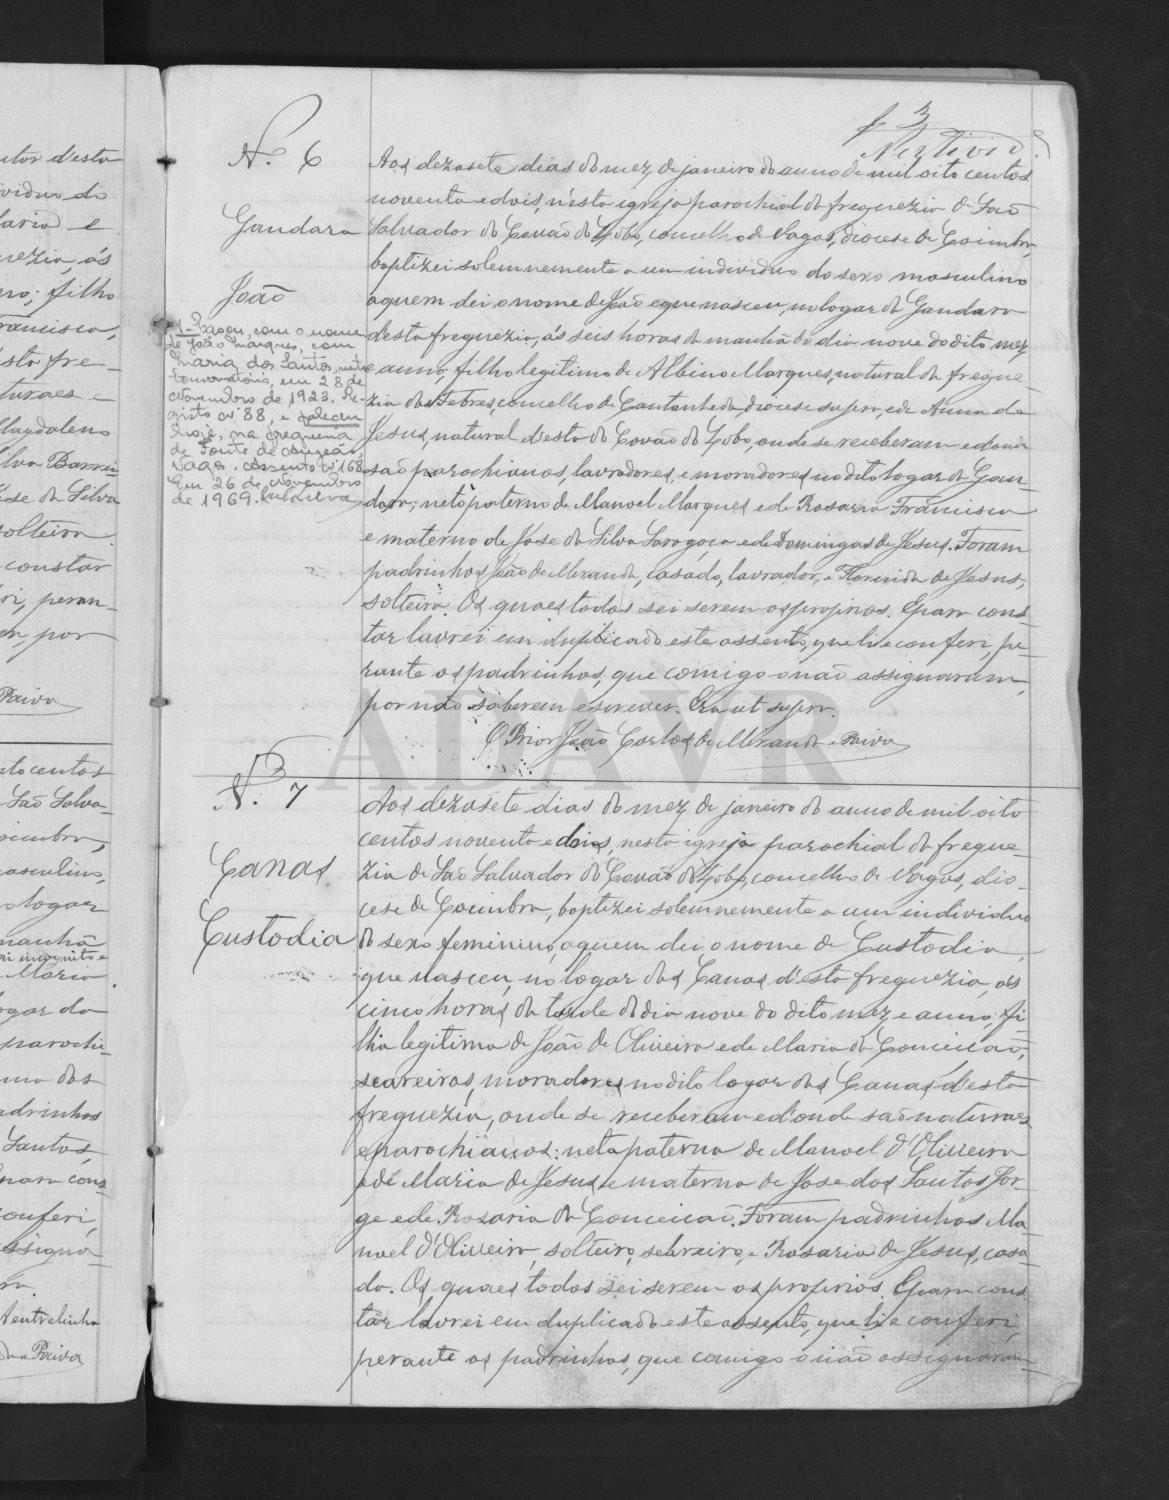 f 3
N.º 6
Gandara
João
1 - Casou, com o nome
de João Marques, com
Maria dos Santos, nesta
Conservatória, em 28 de
Novembro de 1923. Re-
gisto nº 88, e faleceu
hoje, na freguesia
de Fonte de Angeão,
Vagos. Assento nº 168
Em 26 de Novembro
de 1969.
Aos dezasete dias do mez de janeiro do anno de mil oito centos
noventa e dois, n'esta igreja parochial da freguezia de São
Salvador do Covão do Lobo, concelho de Vagos, diocese de Coimbra,
baptizei solemnemente a um individuo do sexo masculino
a quem dei o nome de João e que nasceu, no logar da Gandara
desta freguezia, ás seis horas da manhã do dia nove do dito mez
e anno, filho legitimo de Albino Marques, natural da fregue-
zia das Febres, concelho de Cantanhede, diocese supra, e de Anna de
Jesus, natural d'esta do Covão do Lobo, onde se receberam e donde
são parochianos, lavradores, e moradores no dito logar da Gan-
dara; neto paterno de Manoel Marques e de Rosaria Francisca
e materno de Jose da Silva Saragoça e de Domingas de Jesus. Foram
padrinhos João de Miranda, casado, lavrador, e Florinda de Jesus,
solteira. Os quaes todos sei serem os proprios. E para cons-
tar lavrei em duplicado este assento, que li e conferi, pe-
rante os padrinhos, que comigo o não assignaram,
por não saberem escrever. Era ut supra.
O Prior João Carlos de Miranda e Paiva
N.º 7
Canas
Custodia
Aos dezasete dias do mez de janeiro do anno de mil oito
centos noventa e dois, nesta igreja parochial da fregue-
zia de São Salvador do Covão do Lobo, concelho de Vagos, dio-
cese de Coimbra, baptizei solemnemente a um individuo
do sexo feminino, a quem dei o nome de Custodia,
que nasceu, no logar das Canas d'esta freguezia, as
cinco horas da tarde do dia nove do dito mez e anno, fi-
lha legitima de João de Oliveira e de Maria da Conceicão,
seareiros, moradores no dito logar das Canas d'esta
freguezia, onde se receberam e d'onde são naturaes
e parochianos: neta paterna de Manoel d'Oliveira
e de Maria de Jesus, e materna de Jose dos Santos Jor-
ge e de Rozaria da Conceicão. Foram padrinhos Ma-
noel d'Oliveira, solteiro, seareiro, e Rosaria de Jesus, casa-
da. Os quaes todos sei serem os proprios. E para cons-
tar lavrei em duplicado este assento, que li e conferi,
perante os padrinhos, que comigo o não assignaram
ADAVR